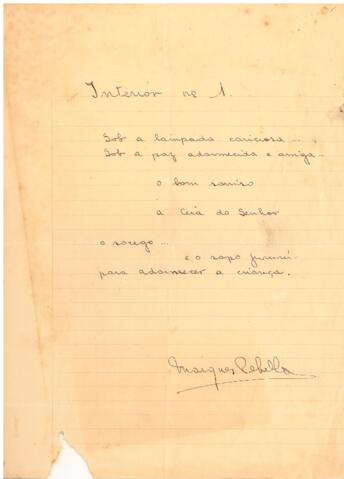 Interior nº 1.
Sob a lampada cariciosa...
Sob a paz adormecida e amiga...
o bom sorriso
a Ceia do Senhor
o socego...
e o sapo jururú
para adormecer a criança.
Marques Rebello